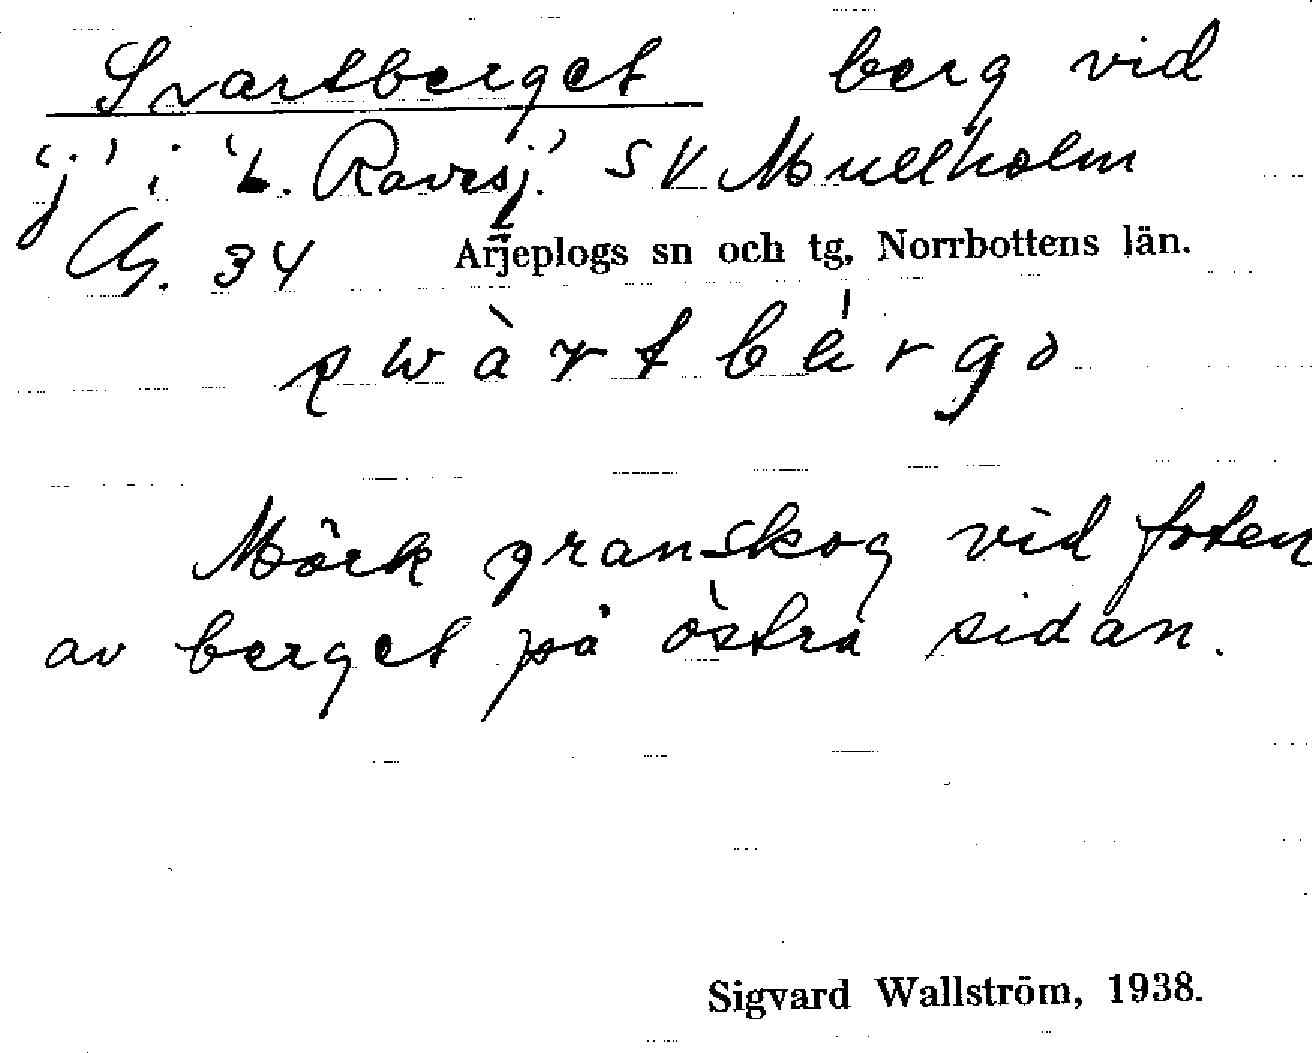 Svartberget berg vid
'j' i 'L. Ravesj.' SV Mullholm
34 Arjeplogs sn och tg, Norrbottens län.
swàrtbérgə
Mörk granskog vid foten
av berget på östra sidan.
Sigvard Wallström, 1938.